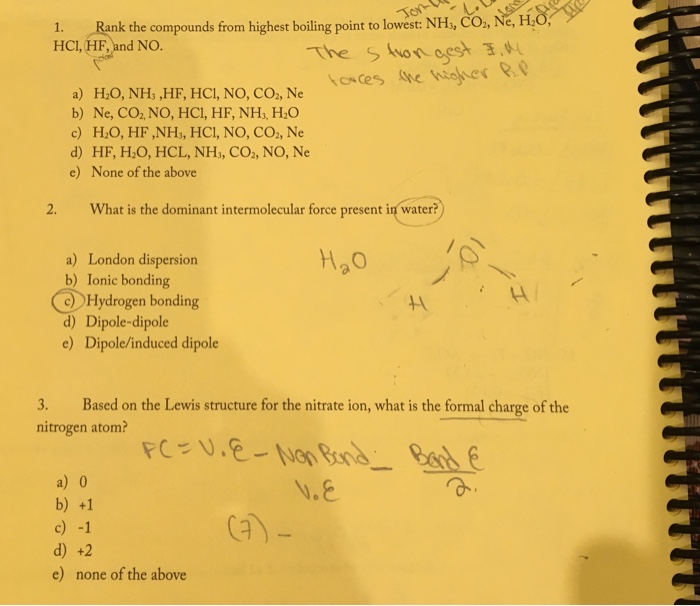 1. Rank the compounds from highest boiling point to lowest: NH₃, CO₂, Ne, H₂O,
HCl, HF, and NO.
The strongest I.M
forces the higher B.P
a) H₂O, NH₃ ,HF, HCl, NO, CO₂, Ne
b) Ne, CO₂, NO, HCl, HF, NH₃, H₂O
c) H₂O, HF ,NH₃, HCl, NO, CO₂, Ne
d) HF, H₂O, HCL, NH₃, CO₂, NO, Ne
e) None of the above
2. What is the dominant intermolecular force present in water?
a) London dispersion
b) Ionic bonding
c) Hydrogen bonding
d) Dipole-dipole
e) Dipole/induced dipole
H₂O
O
H H
3. Based on the Lewis structure for the nitrate ion, what is the formal charge of the
nitrogen atom?
FC = V.E - Non Bond - Bond E
V.E 2.
(7) -
a) 0
b) +1
c) -1
d) +2
e) none of the above